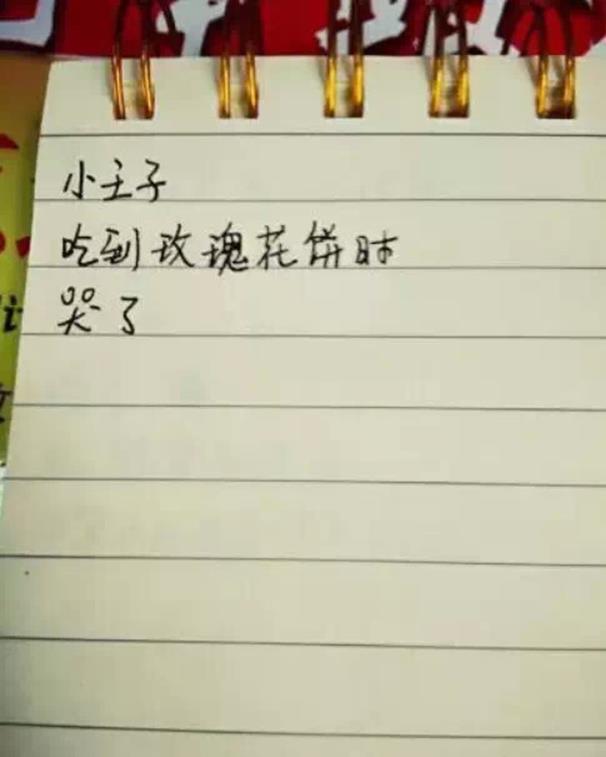 小主子
吃到玫瑰花饼时
哭了